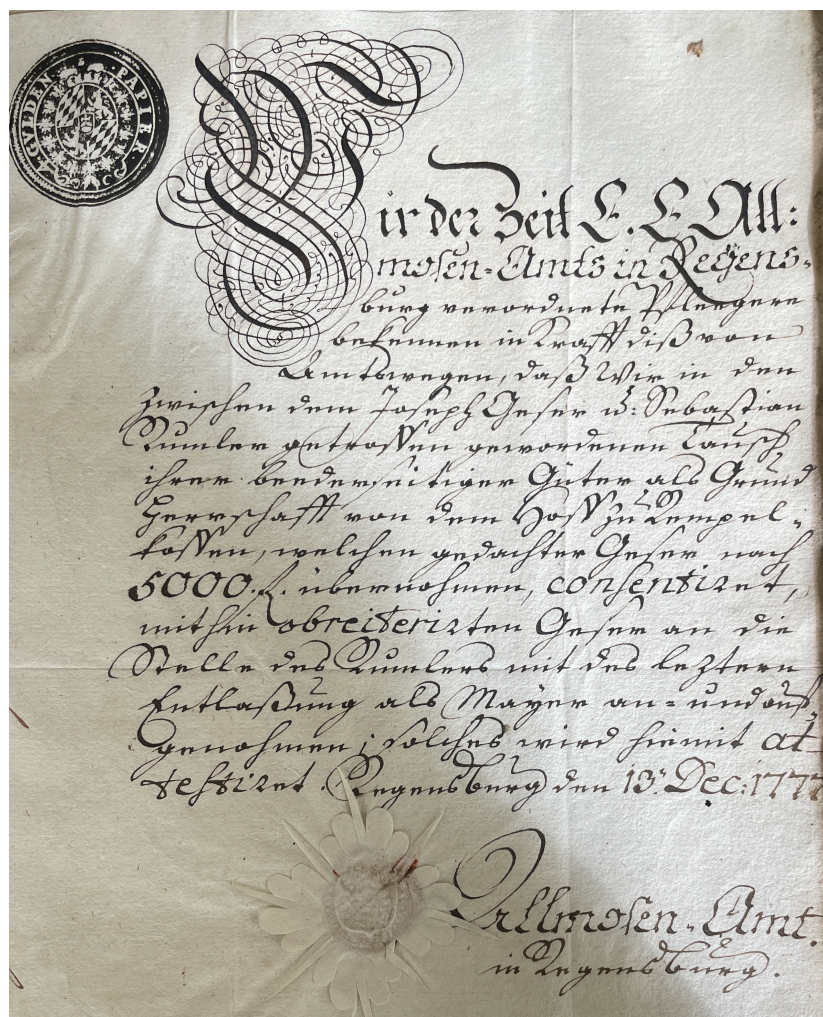 GULDEN PAPIER.
Wir der Zeit E. E. All:
mosen-Amts in Regens-
burg verordnete Pfleegere
bekennen in Krafft diß von
Amtswegen, daß Wir in den
zwischen dem Joseph Geser u: Sebastian
Rumler getroffen gewordenen Tausch
ihrer beederseitiger Güter als Grund
Herrschafft von dem Hoff zu Rempel-
koffen, welchen gedachter Geser nach
5000 f. übernohmen, consentiret,
mithin obreiterirten Geser an die
Stelle des Rumlers mit des leztern
Entlaßung als Mayer an- und auf-
genohmen; solches wird hiemit at-
testiret. Regensburg den 13. Dec: 1777
Allmosen-Amt.
in Regensburg.